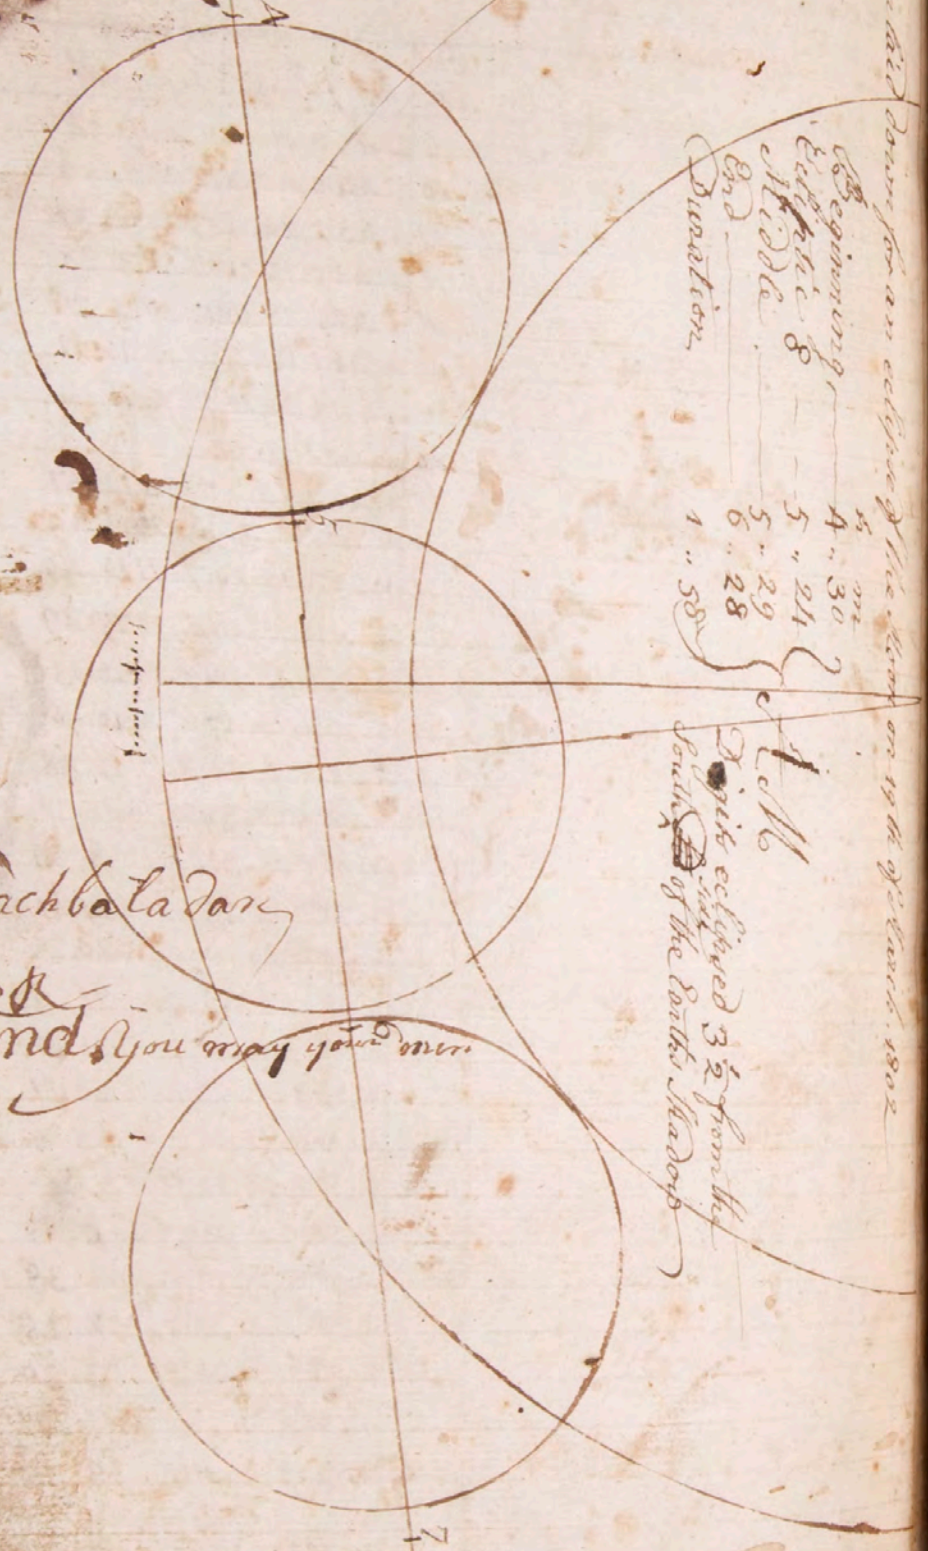 laid down for an eclipse of the Moon on 19th of March. 1802
h m
Beginning, 4 ,, 30
Ecliptic 8 5 ,, 24
Middle 5 ,, 29
End 6 ,, 28
Duration 1 ,, 58
A M
Digits eclipsed 3 1/2 from the
South side of the Earths Shadow
4
5
7
achbaladan
nd. You may your men